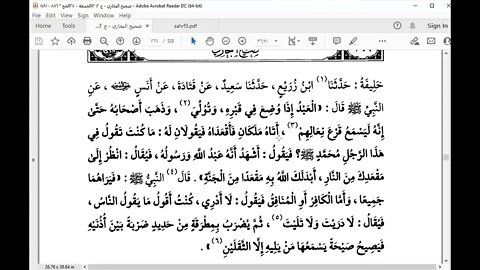 صحيح البخاري - ج ٢ - Adobe Acrobat Reader DC (64-bit)
File Edit View Sign Window Help
Home Tools
sahrf3.pdf
Sign In
خَلِيفَةُ : حَدَّثَنَا (١) ابْنُ زُرَيْعٍ ، حَدَّثَنَا سَعِيدٌ ، عَنْ قَتَادَةَ ، عَنْ أَنَسٍ ، عَنِ
النَّبِيِّ ﷺ قَالَ : « الْعَبْدُ إِذَا وُضِعَ فِي قَبْرِهِ ، وَتُوُلِّيَ (٢) ، وَذَهَبَ أَصْحَابُهُ حَتَّىٰ
إِنَّهُ لَيَسْمَعُ قَرْعَ نِعَالِهِمْ (٣) ، أَتَاهُ مَلَكَانِ فَأَقْعَدَاهُ فَيَقُولَانِ لَهُ : مَا كُنْتَ تَقُولُ فِي
هَذَا الرَّجُلِ مُحَمَّدٍ ﷺ ؟ فَيَقُولُ : أَشْهَدُ أَنَّهُ عَبْدُ اللَّهِ وَرَسُولُهُ ، فَيُقَالُ : انْظُرْ إِلَىٰ
مَقْعَدِكَ مِنَ النَّارِ ، أَبْدَلَكَ اللَّهُ بِهِ مَقْعَدًا مِنَ الْجَنَّةِ » . قَالَ (٤) النَّبِيُّ ﷺ : « فَيَرَاهُمَا
جَمِيعًا ، وَأَمَّا الْكَافِرُ أَوِ الْمُنَافِقُ فَيَقُولُ : لَا أَدْرِي ، كُنْتُ أَقُولُ مَا يَقُولُ النَّاسُ ،
فَيُقَالُ : لَا دَرَيْتَ وَلَا تَلَيْتَ (٥) ، ثُمَّ يُضْرَبُ بِمِطْرَقَةٍ مِنْ حَدِيدٍ ضَرْبَةً بَيْنَ أُذُنَيْهِ
فَيَصِيحُ صَيْحَةً يَسْمَعُهَا مَنْ يَلِيهِ إِلَّا الثَّقَلَيْنِ (٦) » .